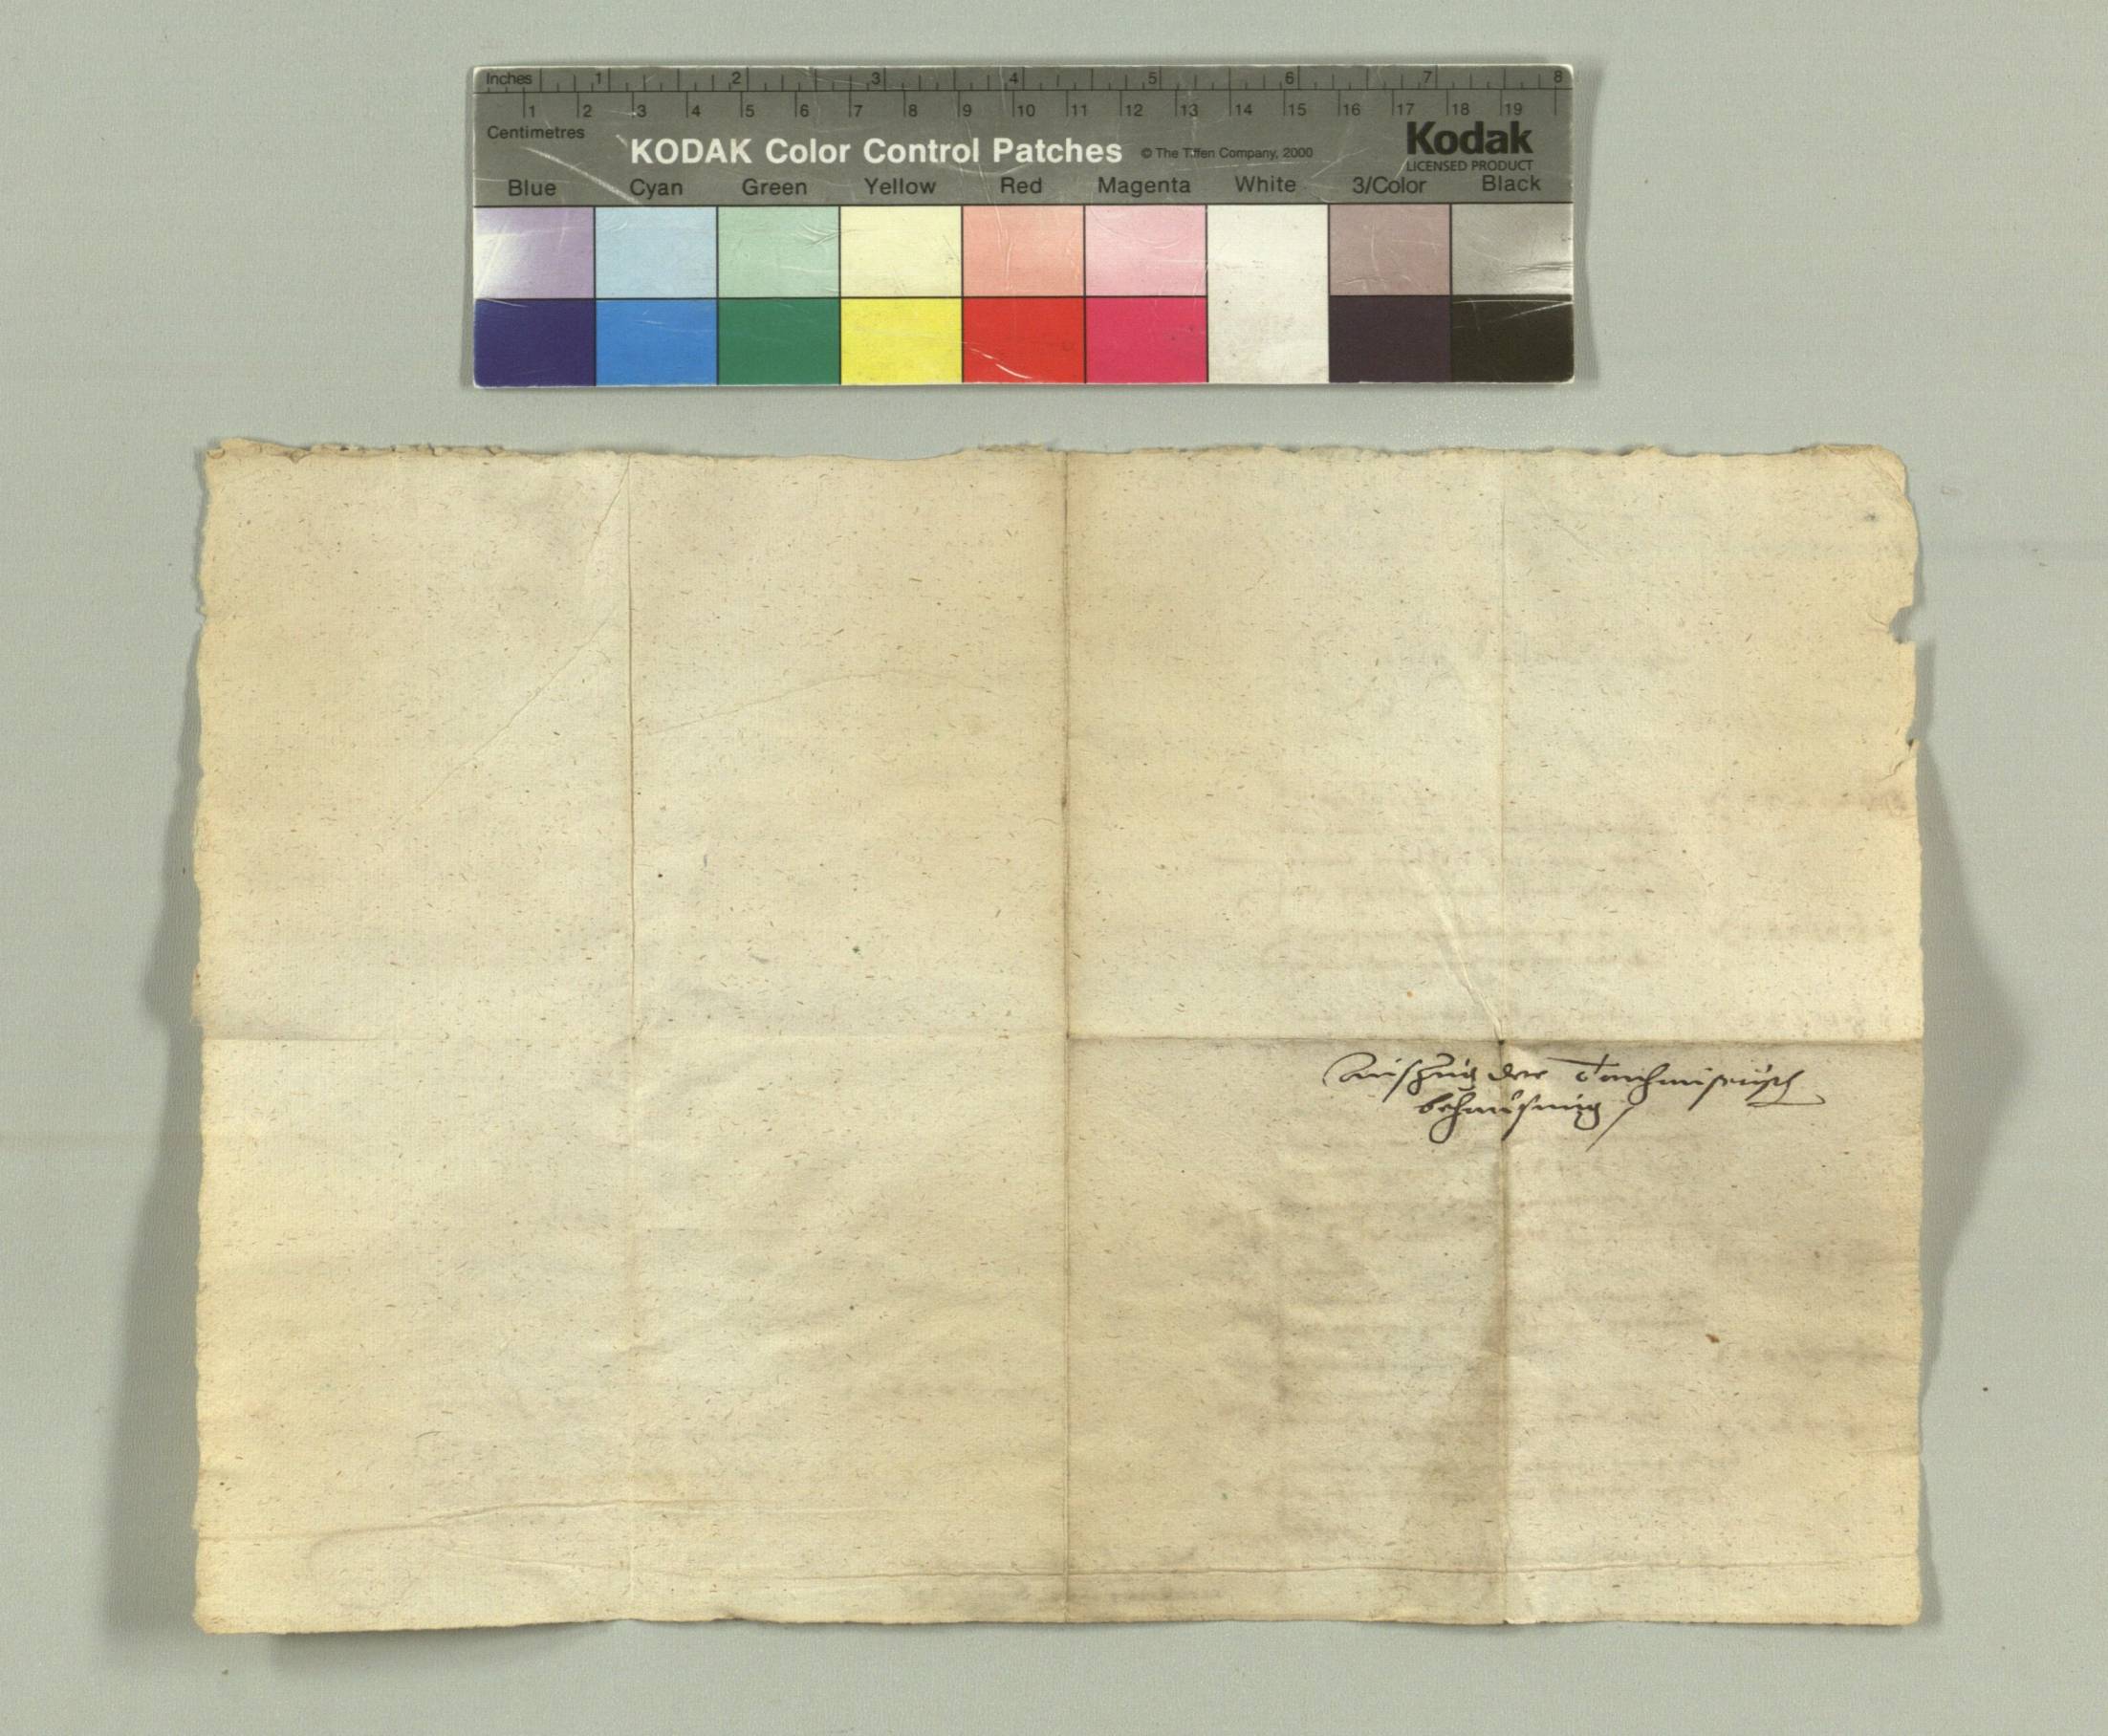 Inches 1 2 3 4 5 6 7 8
1 2 3 4 5 6 7 8 9 10 11 12 13 14 15 16 17 18 19
Centimetres
KODAK Color Control Patches © The Tiffen Company, 2000 Kodak
LICENSED PRODUCT
Blue Cyan Green Yellow Red Magenta White 3/Color Black
Auszug der
behausung